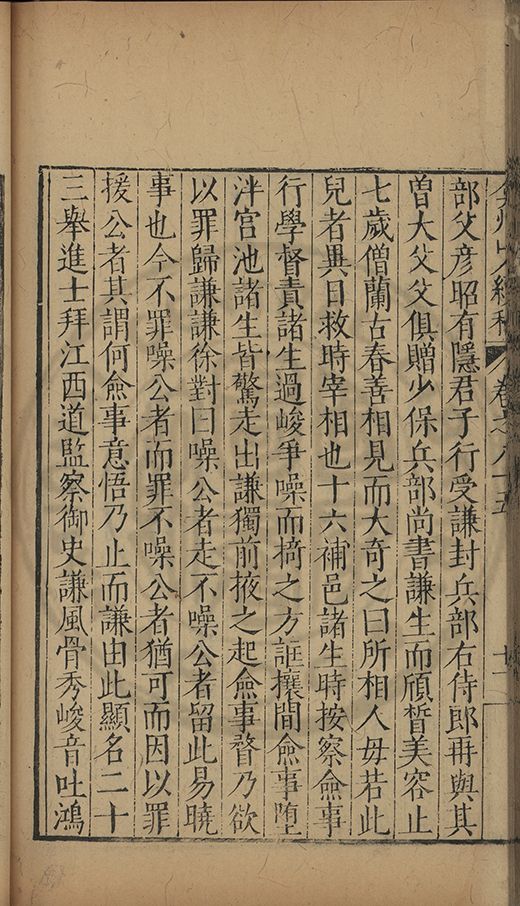 卷之八十五
十一
部父彦昭有隱君子行受謙封兵部右侍郎再與其
曽大父父俱贈少保兵部尚書謙生而頎晳美容止
七歲僧蘭古春善相見而大奇之曰所相人毋若此
兒者異日救時宰相也十六補邑諸生時按察僉事
行學督責諸生過峻爭噪而掎之方誆攘間僉事墮
泮宮池諸生皆驚走出謙獨前掖之起僉事瞀乃欲
以罪歸謙謙徐對曰噪公者走不噪公者留此易曉
事也今不罪噪公者而罪不噪公者猶可而因以罪
援公者其謂何僉事意悟乃止而謙由此顯名二十
三舉進士拜江西道監察御史謙風骨秀峻音吐鴻